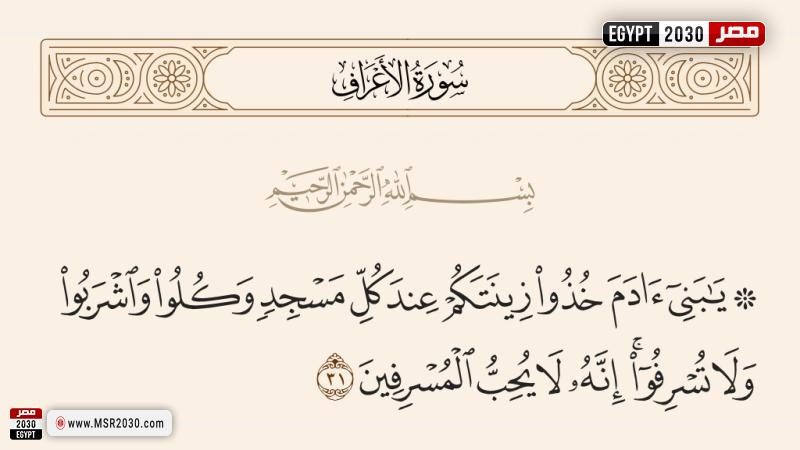 EGYPT 2030 مصر
سُورَةُ الأَعْرَافِ
بِسْمِ ٱللَّهِ ٱلرَّحْمَٰنِ ٱلرَّحِيمِ
۞ يَٰبَنِىٓ ءَادَمَ خُذُوا۟ زِينَتَكُمْ عِندَ كُلِّ مَسْجِدٍ وَكُلُوا۟ وَٱشْرَبُوا۟
وَلَا تُسْرِفُوٓا۟ ۚ إِنَّهُۥ لَا يُحِبُّ ٱلْمُسْرِفِينَ ٣١
مصر
2030
EGYPT
www.MSR2030.com